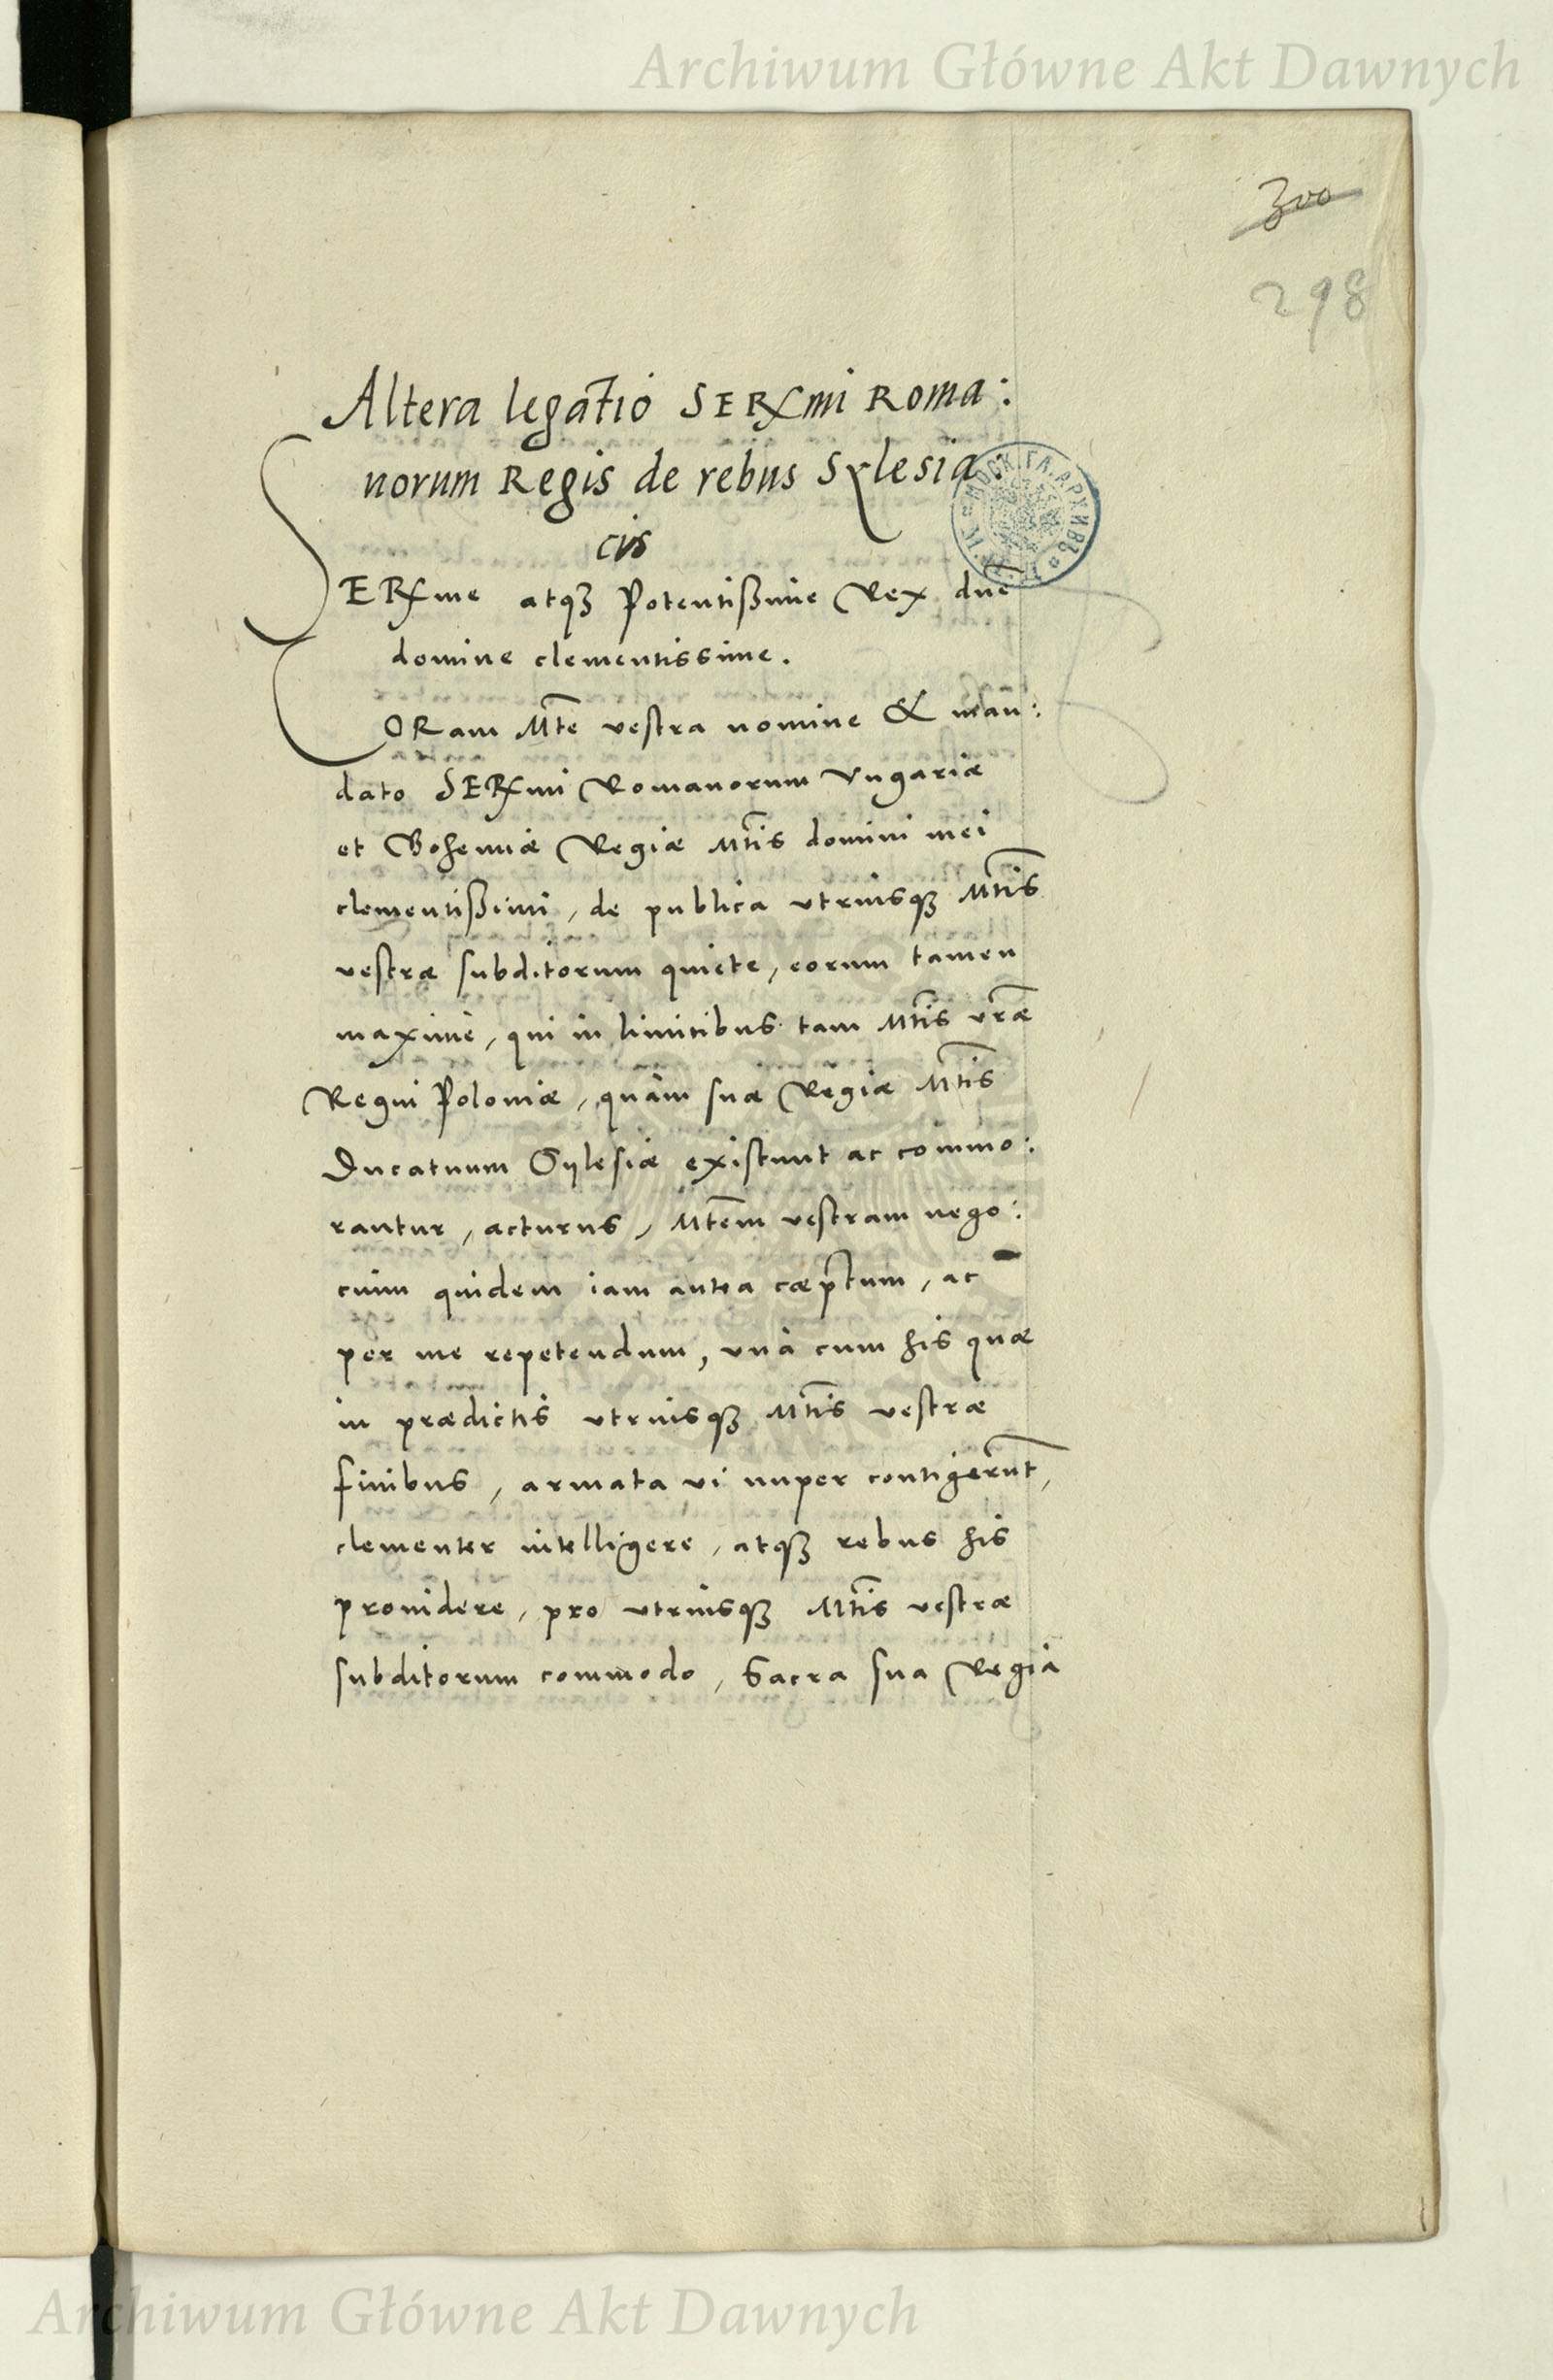 Archiwum Główne Akt Dawnych
300
298
Altera legatio SERmi Roma:
norum Regis de rebus Sylesia:
cis
SERme atqз Potentißime Rex dne
domine clementissime.
CORam Mte vestra nomine & man:
dato SERmi Romanorum Vngariæ
et Bohemiæ Regiæ Mtis domini mei
clementißimi, de publica vtriusqз Mtis
vestræ subditorum quiete, eorum tamen
maxime, qui in limitibus tam Mtis vræ
Regni Poloniæ, quàm suæ Regiæ Mtis
Ducatuum Sylesiæ existunt ac commo:
rantur, acturus, Mtem vestram nego:
cium quidem iam antea cæptum, ac
per me repetendum, vnà cum his quæ
in prædictis vtriusqз Mtis vestræ
finibus, armata vi nuper contigerunt,
clementer intelligere, atqз rebus his
prouidere, pro vtriusqз Mtis vestræ
subditorum commodo, Sacra sua Regia
Archiwum Główne Akt Dawnych